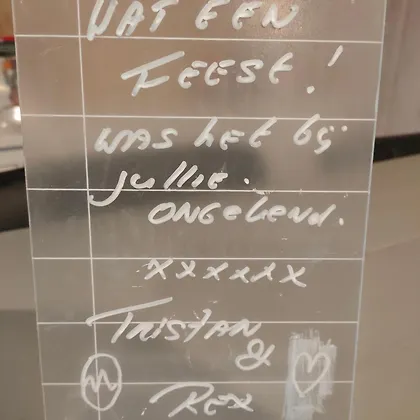 WAT EEN
FEEST!
WAS HET bij
jullie.
ONGEKEND.
xxxxxx
TRISTAN
&
REX